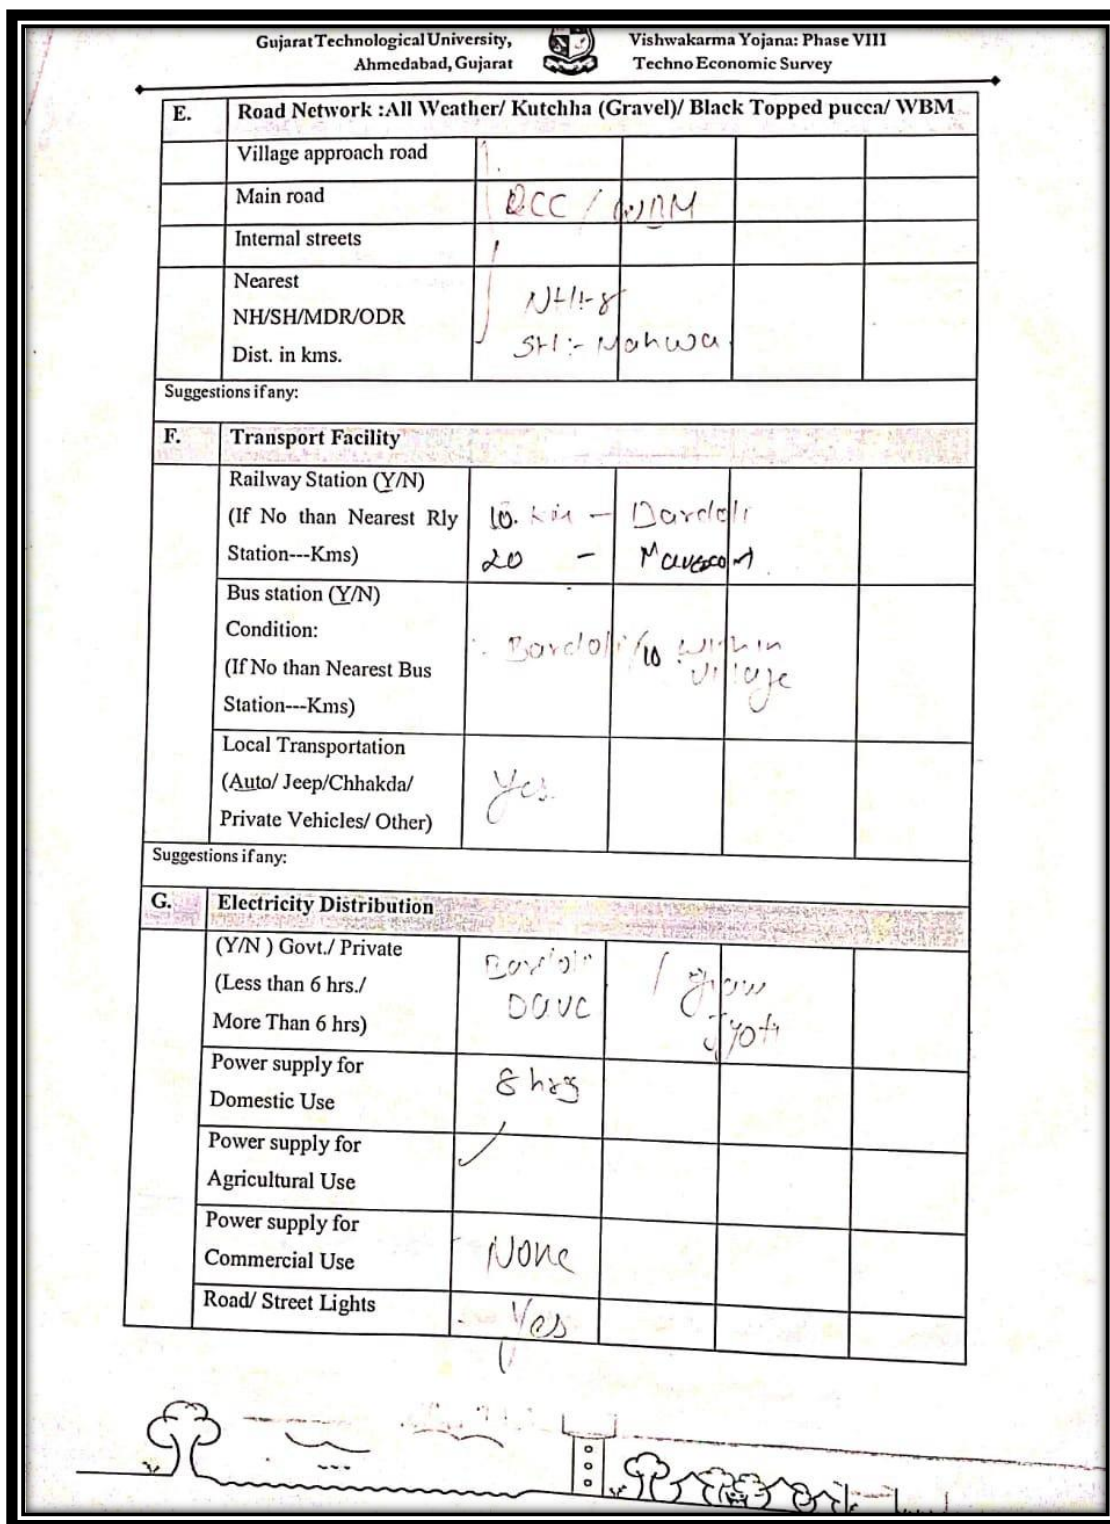 Gujarat Technological University,
Ahmedabad, Gujarat
Vishwakarma Yojana: Phase VIII
Techno Economic Survey
E. Road Network :All Weather/ Kutchha (Gravel)/ Black Topped pucca/ WBM
Village approach road
Main road
RCC / WBM
Internal streets
Nearest
NH/SH/MDR/ODR
Dist. in kms.
NH:-8
SH:- Mahwa
Suggestions if any:
F. Transport Facility
Railway Station (Y/N)
(If No than Nearest Rly
Station---Kms)
10. km - Bardoli
20 -
Bus station (Y/N)
Condition:
(If No than Nearest Bus
Station---Kms)
Bardoli/10 within
village
Local Transportation
(Auto/ Jeep/Chhakda/
Private Vehicles/ Other)
Yes
Suggestions if any:
G. Electricity Distribution
(Y/N ) Govt./ Private
(Less than 6 hrs./
More Than 6 hrs)
Bardoli /
Jyoti
Power supply for
Domestic Use
8 hrs
Power supply for
Agricultural Use
✓
Power supply for
Commercial Use
None
Road/ Street Lights
Yes